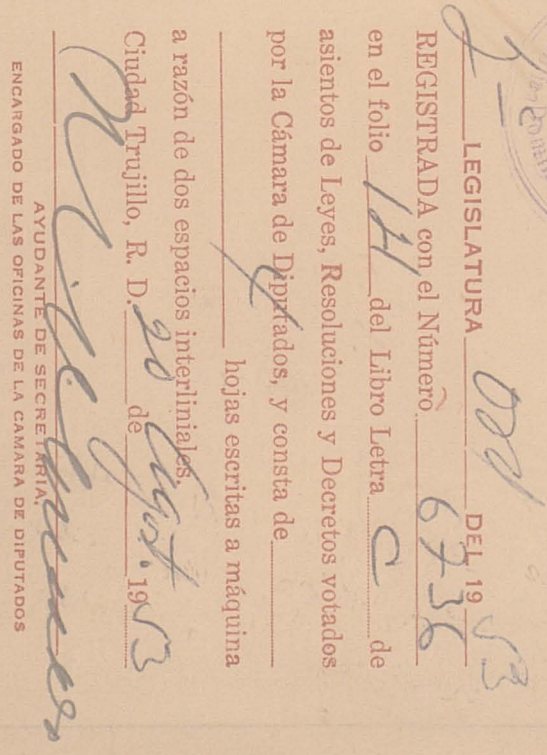 LEGISLATURA Ord DEL 1953
REGISTRADA con el Número 6736
en el folio 121 del Libro Letra C de
asientos de Leyes, Resoluciones y Decretos votados
por la Cámara de Diputados, y consta de
hojas escritas a máquina
a razón de dos espacios interliniales.
Ciudad Trujillo, R. D. 20 de Agost. 1953
AYUDANTE DE SECRETARIA,
ENCARGADO DE LAS OFICINAS DE LA CAMARA DE DIPUTADOS